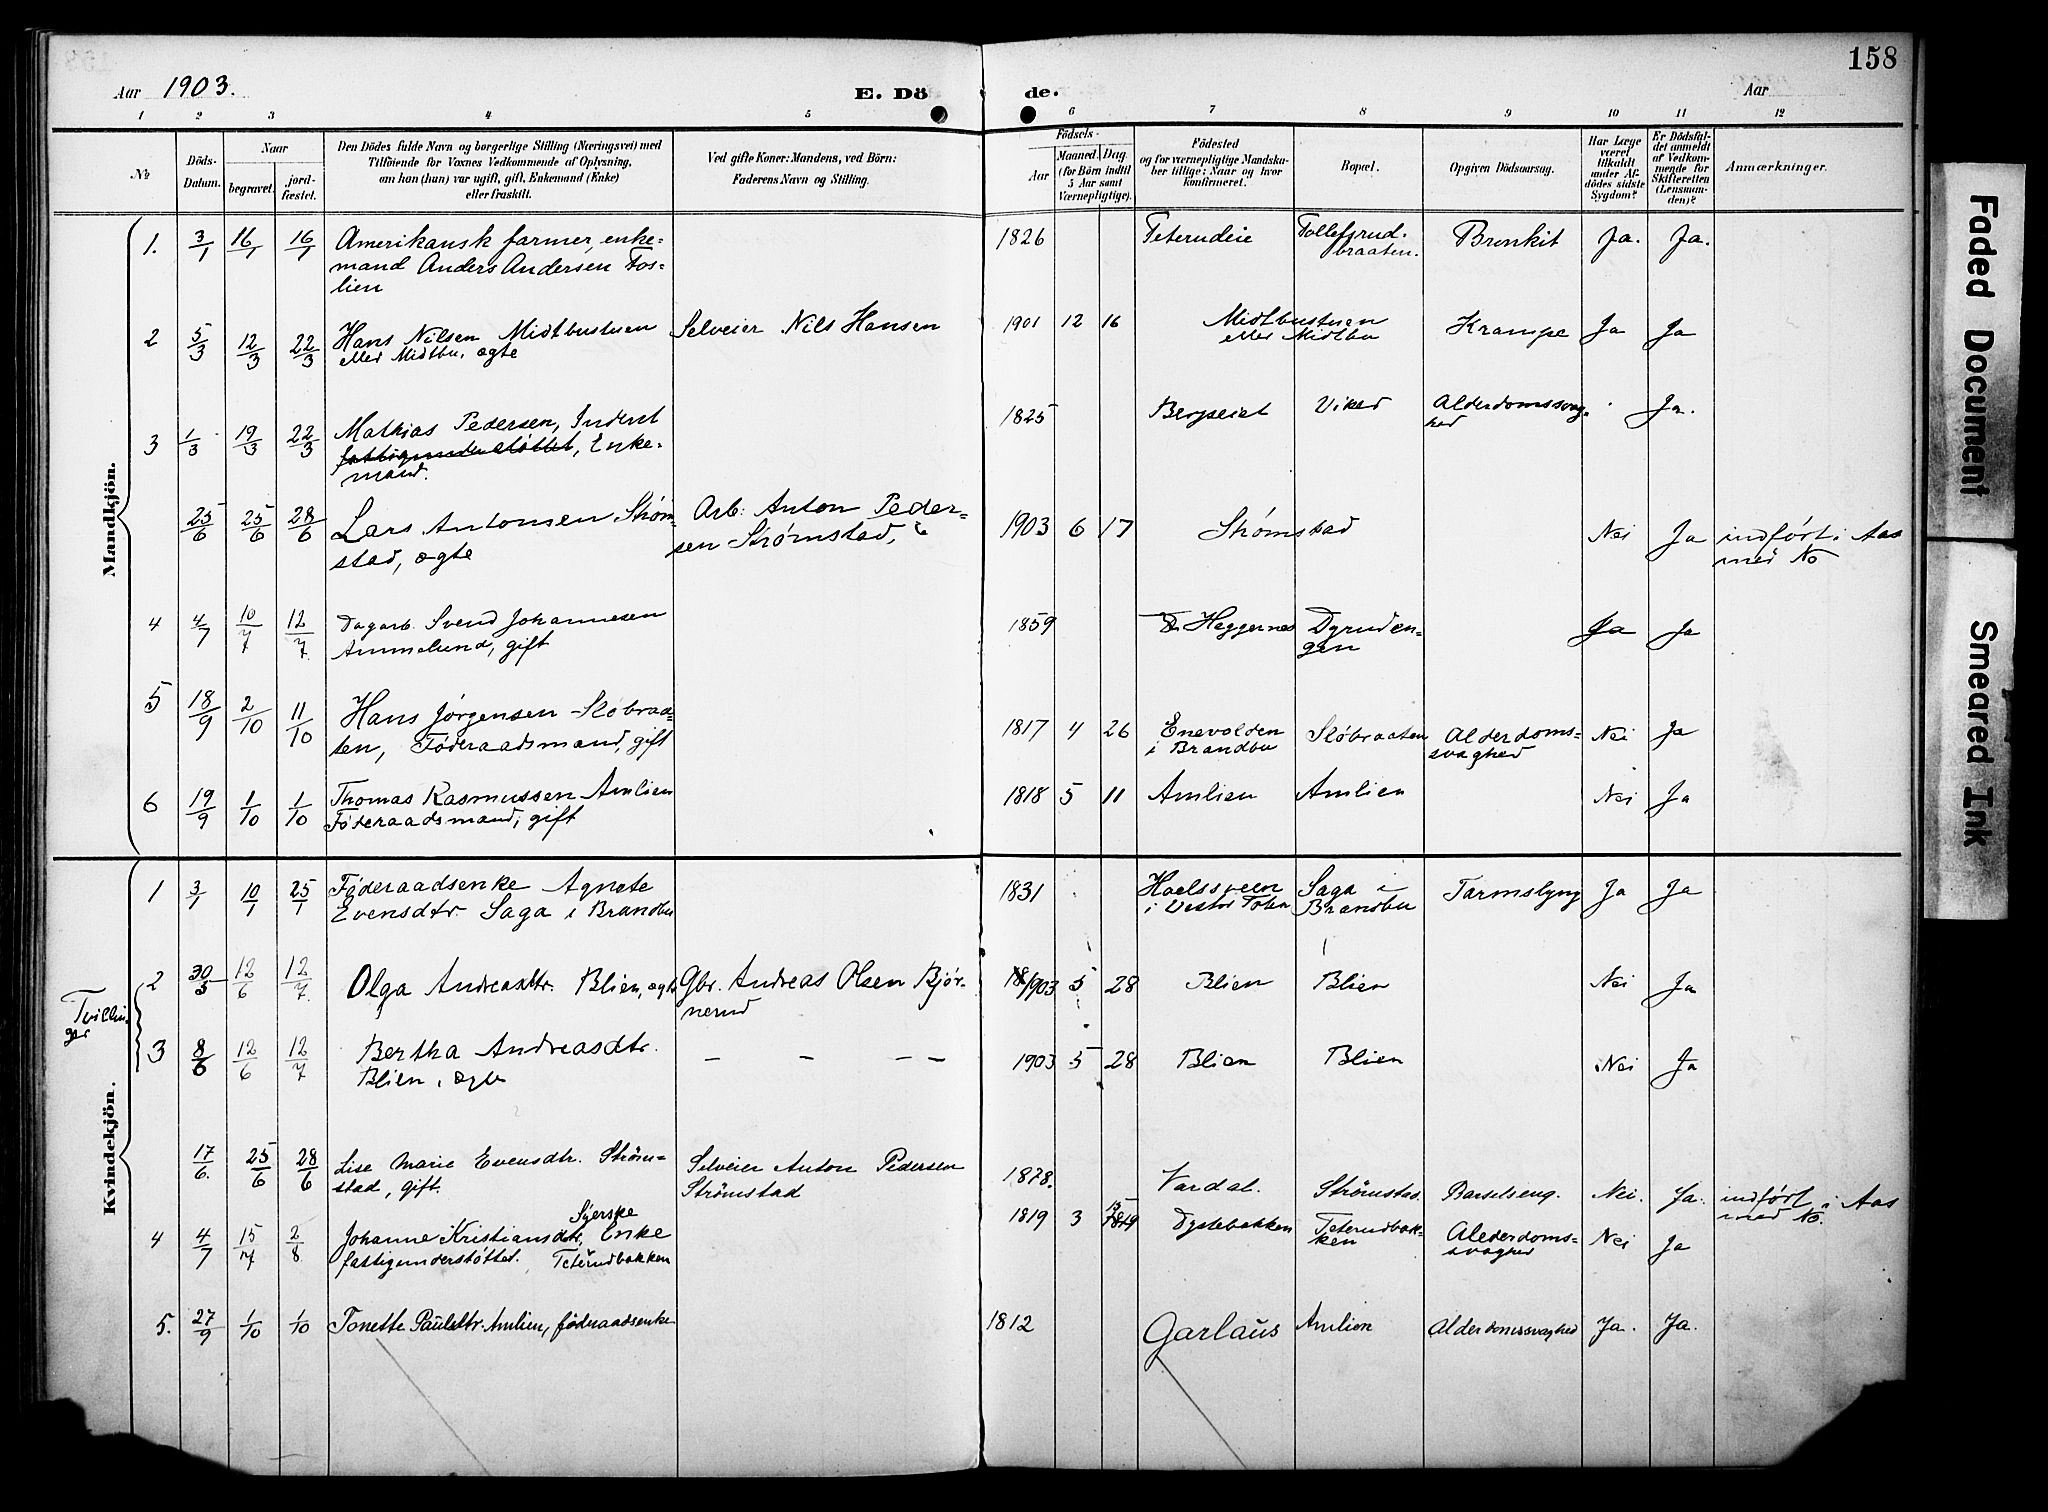 158
Aar 1903.
E. Dö de.
Aar
1 2 3 4 5 6 7 8 9 10 11 12
№
Döds-
Datum.
Naar
begravet.
jord-
fæstet.
Den Dödes fulde Navn og borgerlige Stilling (Næringsvei) med
Tilföiende for Voxnes Vedkommende af Oplysning,
om han (hun) var ugift, gift, Enkemand (Enke)
eller fraskilt.
Ved gifte Koner: Mandens, ved Börn:
Faderens Navn og Stilling.
Födsels-
Aar
Maaned. Dag
(for Börn indtil
5 Aar samt
Værnepligtige).
Födested
og for værnepligtige Mandska-
ber tillige: Naar og hvor
konfirmeret.
Bopæl.
Opgiven Dödsaarsag.
Har Læge
været
tilkaldt
under Af-
dödes sidste
Sygdom?
Er Dödsfal-
det anmeldt
af Vedkom-
mende for
Skifteretten
(Lensman-
den)?
Anmærkninger.
Mandkjön.
1. 3/1 16/1 16/1 Amerikansk farmer, enke- 1826 Teterudeie Tollefsrud- Bronkit Ja. Ja.
mand Anders Andersen Fos- braaten.
lien
2 5/3 12/3 22/3 Hans Nilsen Midtbustuen Selveier Nils Hansen 1901 12 16 Midtbustuen Krampe Ja Ja
eller Midtbu, ægte eller Midtbu
3 1/3 19/3 22/3 Mathias Pedersen, Inderst 1825 Bergseiet Viked Alderdomssvag- Ja.
fattigunderstøttet, Enke- hed
mand.
25/6 25/6 28/6 Lars Antonsen Strøm- Arb. Anton Peder- 1903 6 17 Strømstad Nei Ja indført i Aas
stad, ægte sen Strømstad, med No
4 4/7 10/7 12/7 Dagarb. Svend Johannesen 1859 Heggernes Dyruden- Ja Ja
Ammelund, gift gen
5 18/9 2/10 11/10 Hans Jørgensen Sløbraa- 1817 4 26 Enevolden Sløbraaten Alderdoms- Nei Ja
ten, Føderaadsmand, gift i Brandbu svaghed
6 19/9 1/10 1/10 Thomas Rasmussen Amlien 1818 5 11 Amlien Amlien Nei Ja
Føderaadsmand, gift
Kvindekjön.
1 3/1 10/1 25/1 Føderaadsenke Agnete 1831 Hoelssveen Saga i Tarmslyng Ja Ja
Evensdtr. Saga i Brandbu i Vestre Toten Brandbu
Tvillin-
ger
2 30/5 12/6 12/7 Olga Andreasdtr. Blien, ægte Gbr. Andreas Olsen Bjør- 1903 5 28 Blien Blien Nei Ja
nerud
3 8/6 12/6 12/7 Bertha Andreasdtr. – – – – 1903 5 28 Blien Blien Nei Ja
Blien, ægte
17/6. 25/6 28/6 Lise Marie Evensdtr. Strøm- Selveier Anton Pedersen 1878. Vardal. Strømstad. Barselseng. Nei. Ja. indført i Aas
stad, gift. Strømstad med No.
4 4/7 15/7 2/8 Johanne Kristiansdtr, Syerske Enke 1819 3 15 Dystebakken Teterudbak- Alderdoms- Nei Ja
fattigunderstøttet. Teterudbakken ken svaghed
5. 27/9 1/10 1/10 Tonette Paulsdtr. Amlien, føderaadsenke 1812 Garlaus Amlien Alderdomssvaghed Ja. Ja.
Faded Document
Smeared Ink